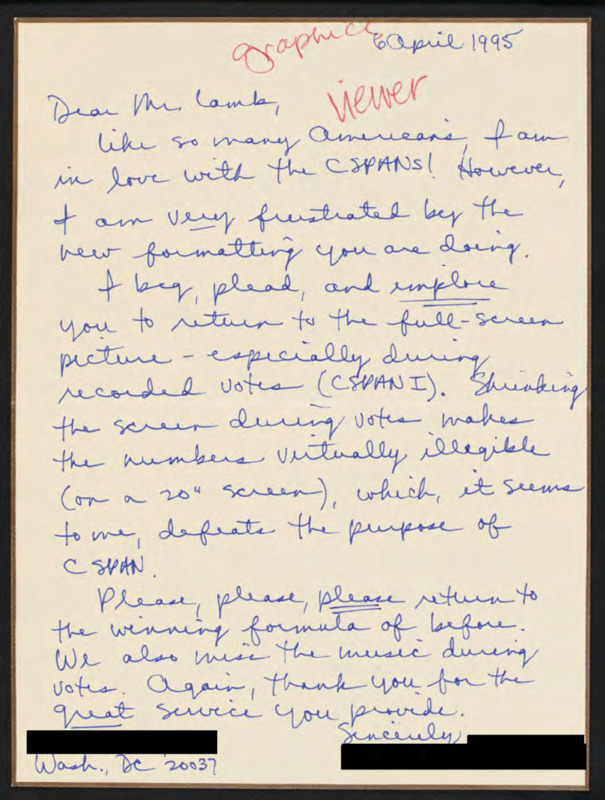 graphics
6 April 1995
viewer
Dear Mr. Lamb,
Like so many Americans, I am
in love with the CSPANs! However,
I am very frustrated by the
new formatting you are doing.
I beg, plead, and implore
you to return to the full-screen
picture - especially during
recorded votes (CSPAN I). Shrinking
the screen during votes makes
the numbers virtually illegible
(on a 20" screen), which, it seems
to me, defeats the purpose of
CSPAN.
Please, please, please return to
the winning formula of before.
We also miss the music during
votes. Again, thank you for the
great service you provide.
Sincerely
Wash., DC 20037